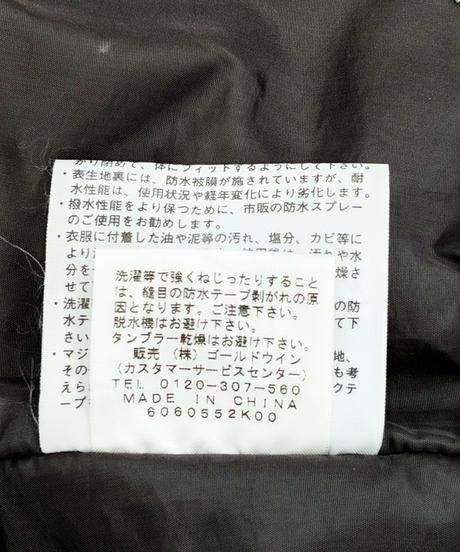 がり閉めて、体にフィットするようにして下さい。
・表生地裏には、防水被膜が施されていますが、耐
水性能は、使用状況や経年変化により劣化します。
・撥水性能をより保つために、市販の防水スプレー
のご使用をお勧めします。
・衣服に付着した油や泥等の汚れ、塩分、カビ等に
より
汚れや水
分を
燥さ
せて
・洗濯
の防
水テ
て下
さい
・マジ
地、
その
も考
えら
クテ
ープ
洗濯等で強くねじったりすること
は、縫目の防水テープ剥がれの原
因となります。ご注意下さい。
脱水機はお避け下さい。
タンブラー乾燥はお避け下さい。
販売 (株) ゴールドウイン
(カスタマーサービスセンター)
TEL 0120-307-560
MADE IN CHINA
6060552K00